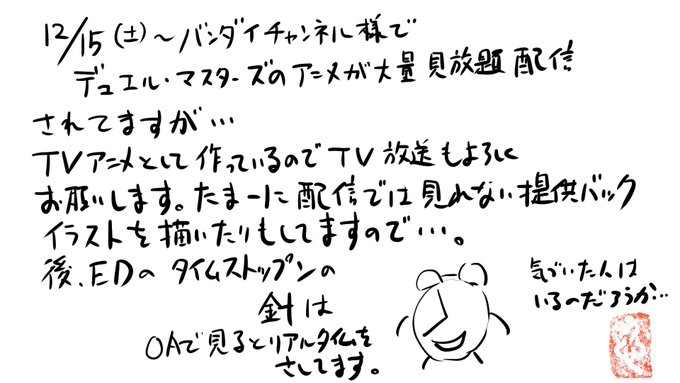 12/15(土)～バンダイチャンネル様で
デュエル・マスターズのアニメが大量見放題配信
されてますが…
TVアニメとして作っているのでTV放送もよろしく
お願いします。たまーに配信では見れない提供バック
イラストを描いたりもしてますので…。
後、EDのタイムストップンの
針は
OAで見るとリアルタイムを
さしてます。
気づいた人は
いるのだろうか…